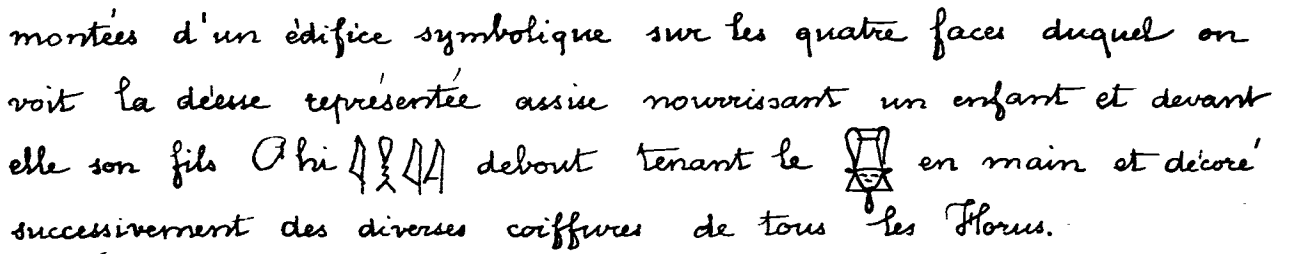 montées d'un édifice symbolique sur les quatre faces duquel on
voit la déesse représentée assise nourrissant un enfant et devant
elle son fils Ahi 𓇋𓎛𓇋𓇋 debout tenant le en main et décoré
successivement des diverses coiffures de tous les Horus.